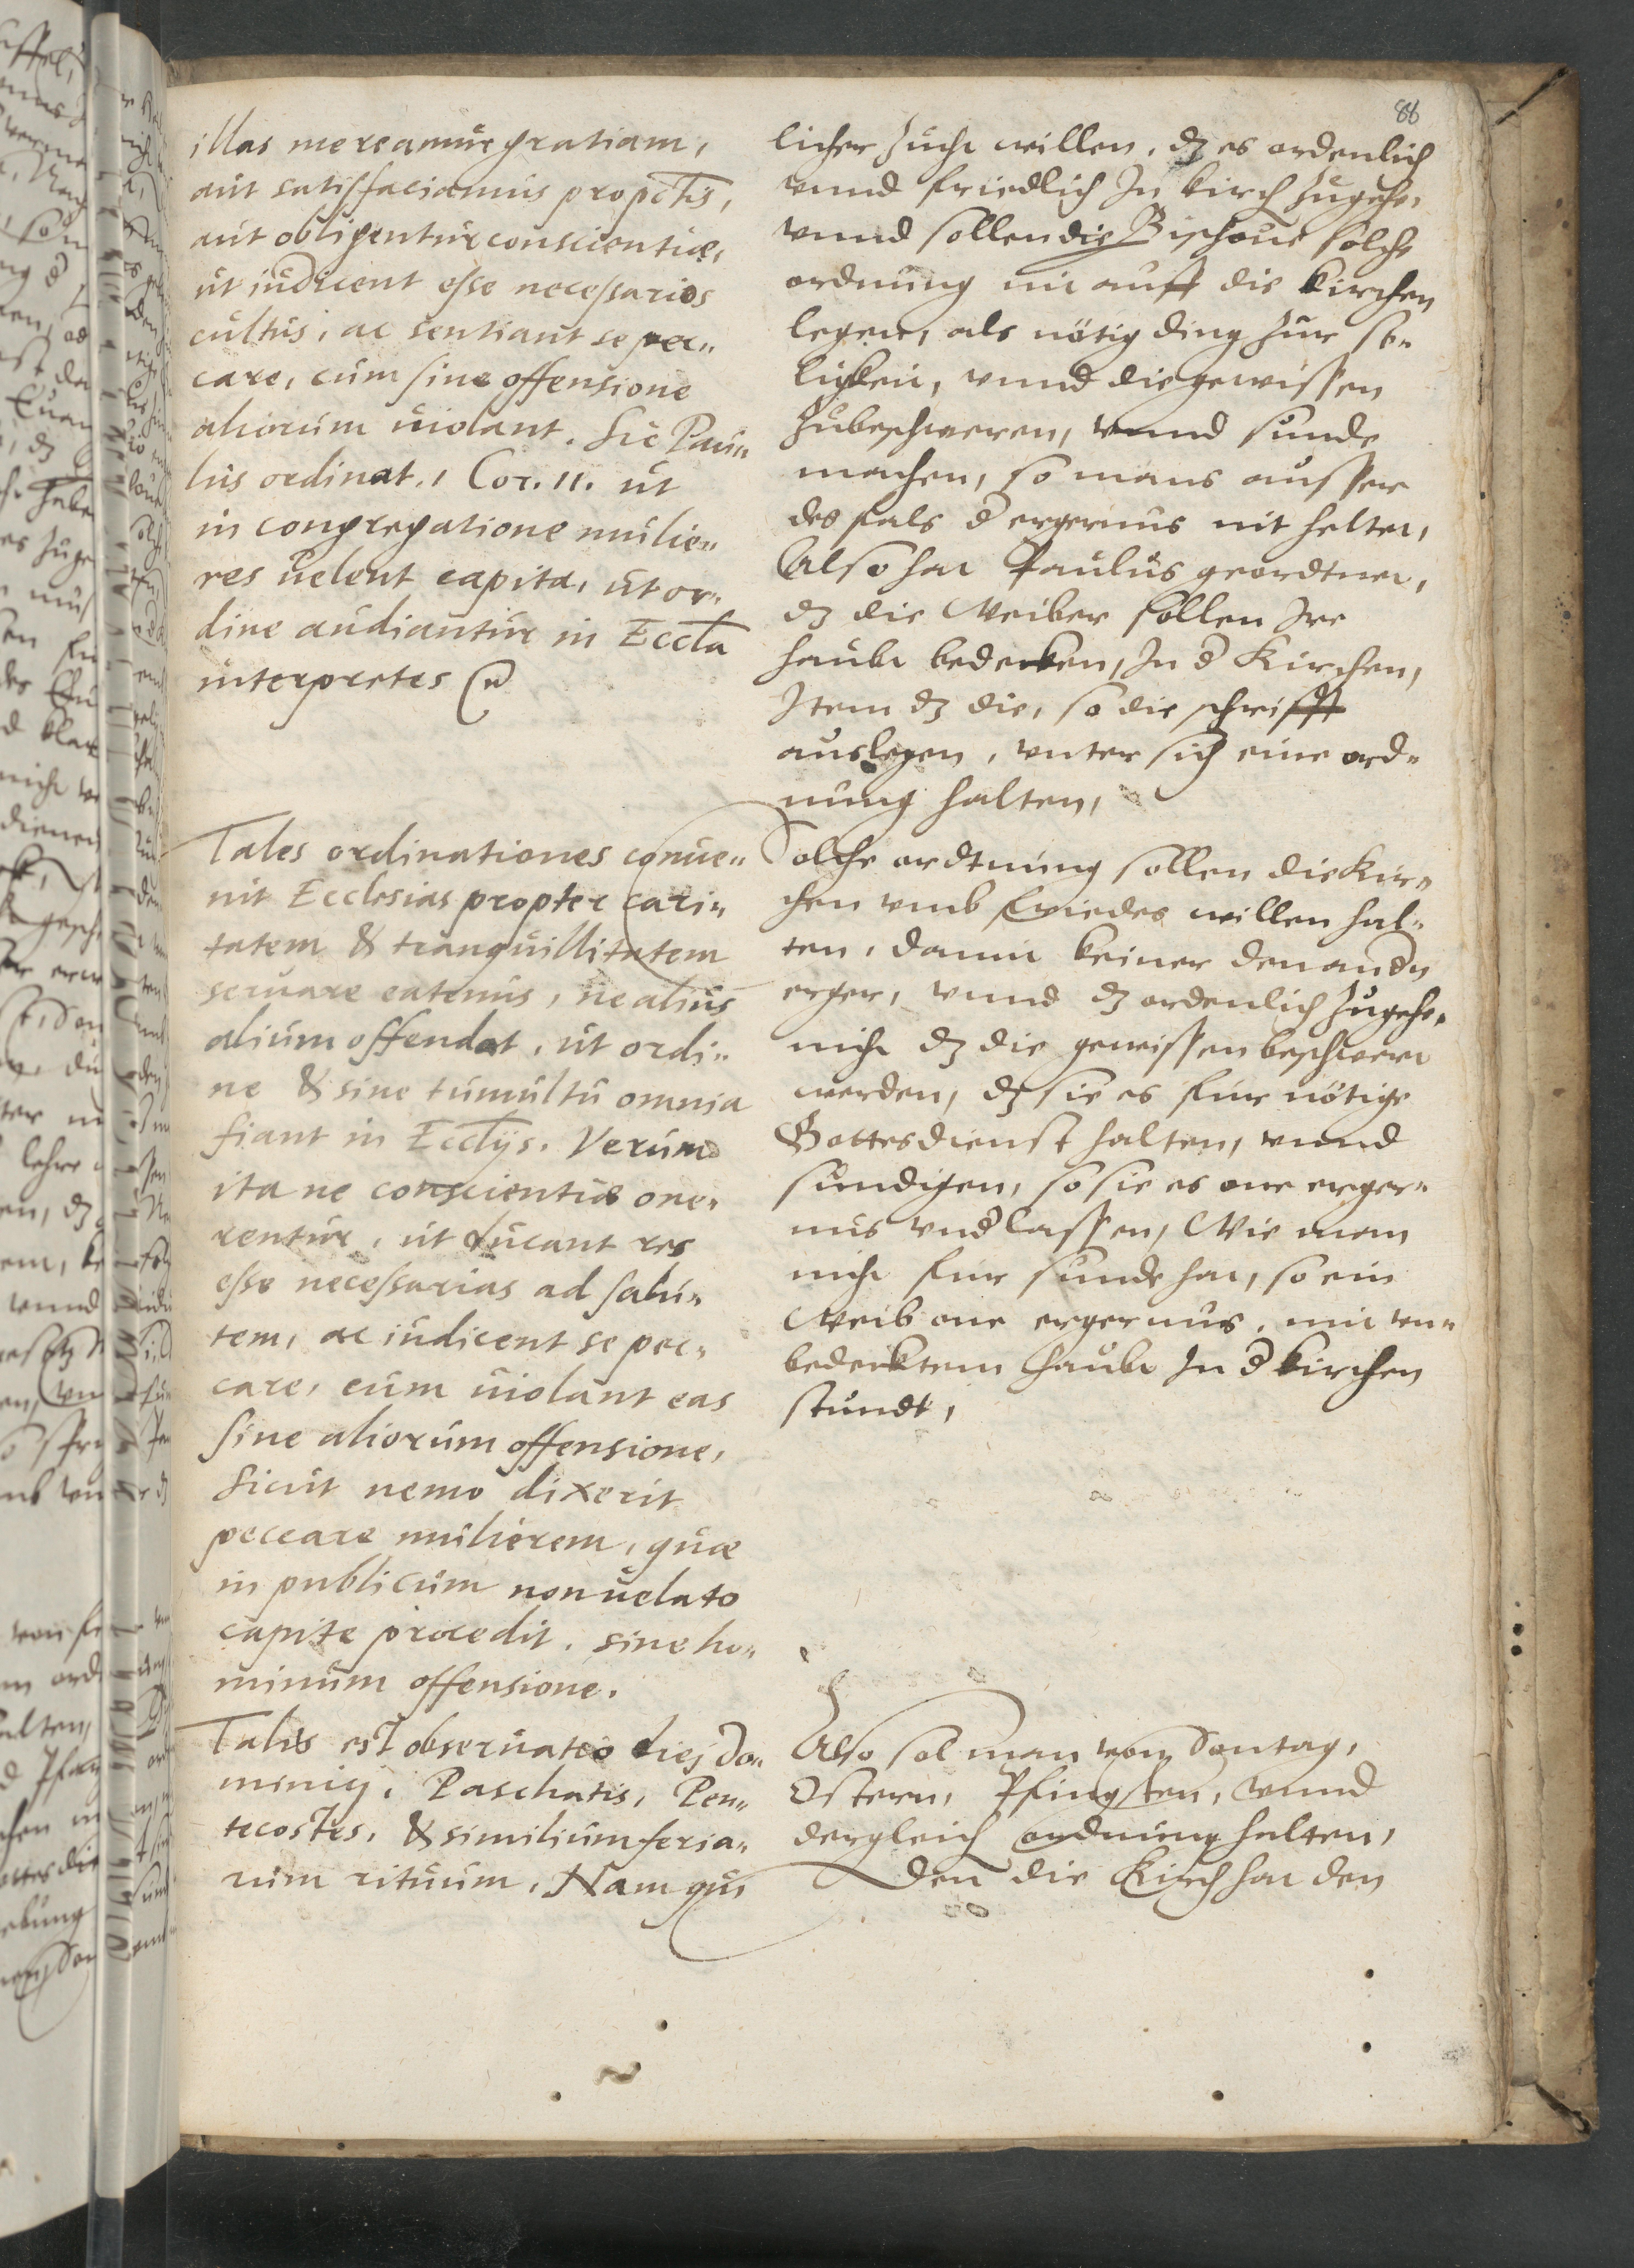 86
illas mereamur gratiam,
aut satisfaciamus pro pctis,
aut obligentur conscientiæ,
ut iudicent esse necessarios
cultus, ac sentiant se pec„
care, cum sine offensione
aliorum uiolant. Sic Pau„
lus ordinat. 1 Cor. 11. ut
in congregatione mulie„
res uelent capita, ut or„
dine audiantur in Eccla
interpretes
Tales ordinationes conue„
nit Ecclesias propter cari„
tatem & tranquillitatem
seruare eatenus, ne alius
alium offendat, ut ordi„
ne & sine tumultu omnia
fiant in Ecclijs. Verum
ita ne conscientiæ one„
rentur, ut ducant res
esse necessarias ad salu„
tem, ac iudicent se pec„
care, cum uiolant eas
sine aliorum offensione,
Sicut nemo dixerit
peccare mulierem, quæ
in publicum non uelato
capite procedit, sine ho„
minum offensione.
Talis est obseruatio diej Do„
minicj, Paschatis, Pen„
tecostes, & similium feria„
rum rituum. Nam qui
licher zucht willen, dz es ordenlich
vnnd friedlich In kirch zugehe,
vnnd sollen die Bischoue solche
ordnung nit auff die kirchen
legen, als nötig ding zur se„
lickeit, vnnd die gewissen
zubeschweren, vnnd sunde
machen, so mans ausser
des fals d ergernus nit heltet,
Also hat Paulus geordtnet,
dz die Weiber sollen Ire
haubt bedecken, In d Kirchen,
Item dz die, so die schrifft
auslegen, vnter sich eine ord„
nung halten,
Solche ordtnung sollen die Kir„
chen vmb friedes willen hal„
ten, damit keiner den andn
erger, vnnd dz ordenlich zugehe,
nicht dz die gewissen beschwert
werden, dz sie es fur nötige
Gottesdienst halten, vnnd
sundigen, so sie es one erger„
nus vndlassen, Wie man
nicht fur sunde hat, so ein
Weib one ergernus, mit vn„
bedecktem haubt In d kirchen
stundt,
Also sol man vom Sontag,
Ostern, Pfingsten, vnnd
dergleich ordnung halten,
Den die Kirch hat den